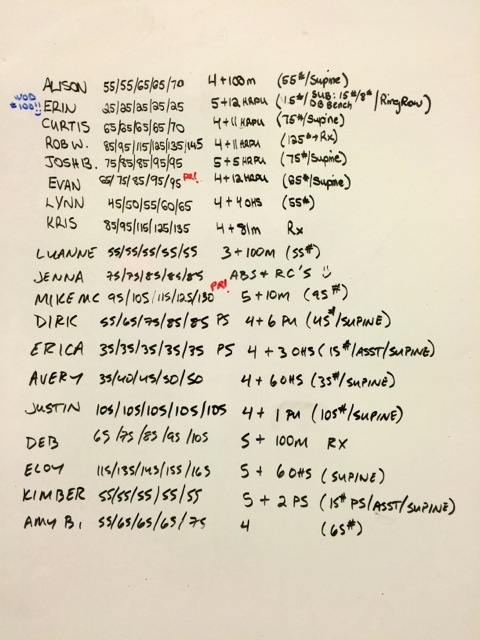 ALISON 55/55/65/65/70 4+100m (55#/Supine)
WOD #100!! ERIN 25/25/25/25/25 5+12 HRPU (15#/SUB: 15#/8# DB Bench/Ring Row)
CURTIS 65/65/65/65/70 4+11 HRPU (75#/Supine)
ROB W. 85/95/115/125/135/145 4+11 HRPU (125#+Rx)
JOSH B. 75/85/85/95/95 5+5 HRPU (75#/Supine)
EVAN 65/75/85/95/95 PR! 4+12 HRPU (85#/Supine)
LYNN 45/50/55/60/65 4+4 OHS (55#)
KRIS 85/95/115/125/135 4+81m Rx
LUANNE 55/55/55/55/55 3+100m (55#)
JENNA 75/75/85/85/85 ABS + RC'S
MIKE MC 95/105/115/125/130 PR! 5+10m (95#)
DIRK 55/65/75/85/85 PS 4+6 PU (45#/SUPINE)
ERICA 35/35/35/35/35 PS 4+3 OHS (15#/ASST/SUPINE)
AVERY 35/40/45/50/50 4+6 OHS (35#/SUPINE)
JUSTIN 105/105/105/105/105 4+1 PU (105#/SUPINE)
DEB 65/75/85/95/105 5+100m RX
ELOY 115/135/145/155/165 5+6 OHS (SUPINE)
KIMBER 55/55/55/55/55 5+2 PS (15# PS/ASST/SUPINE)
AMY B. 55/65/65/65/75 4 (65#)